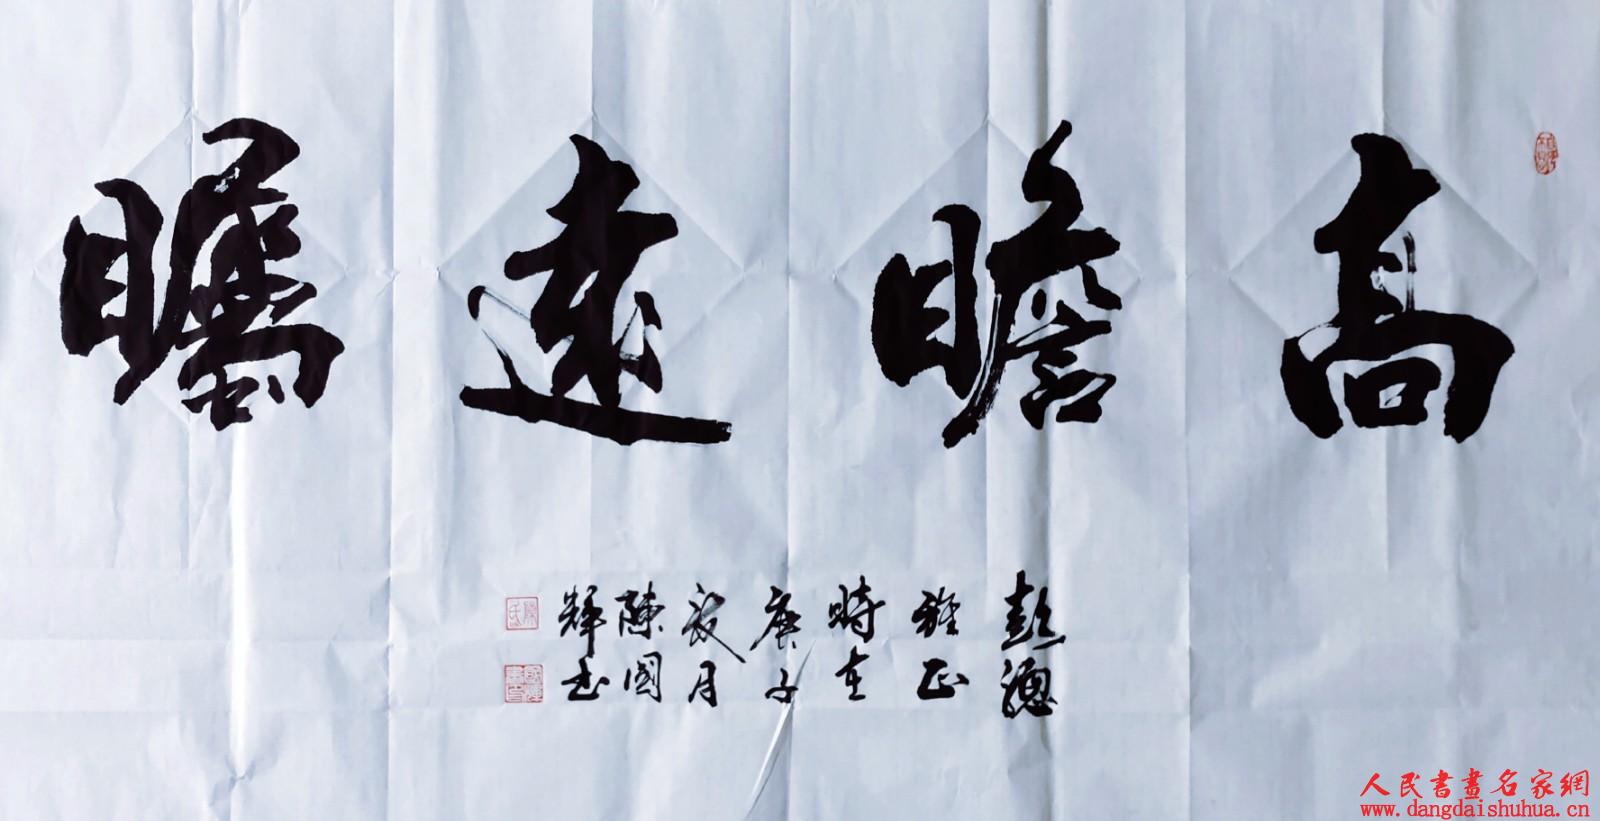 高瞻遠矚
彭總
雅正
時在
庚子
月
陳國
輝书
陳氏
國輝書印
人民書畫名家網
www.dangdaishuhua.cn